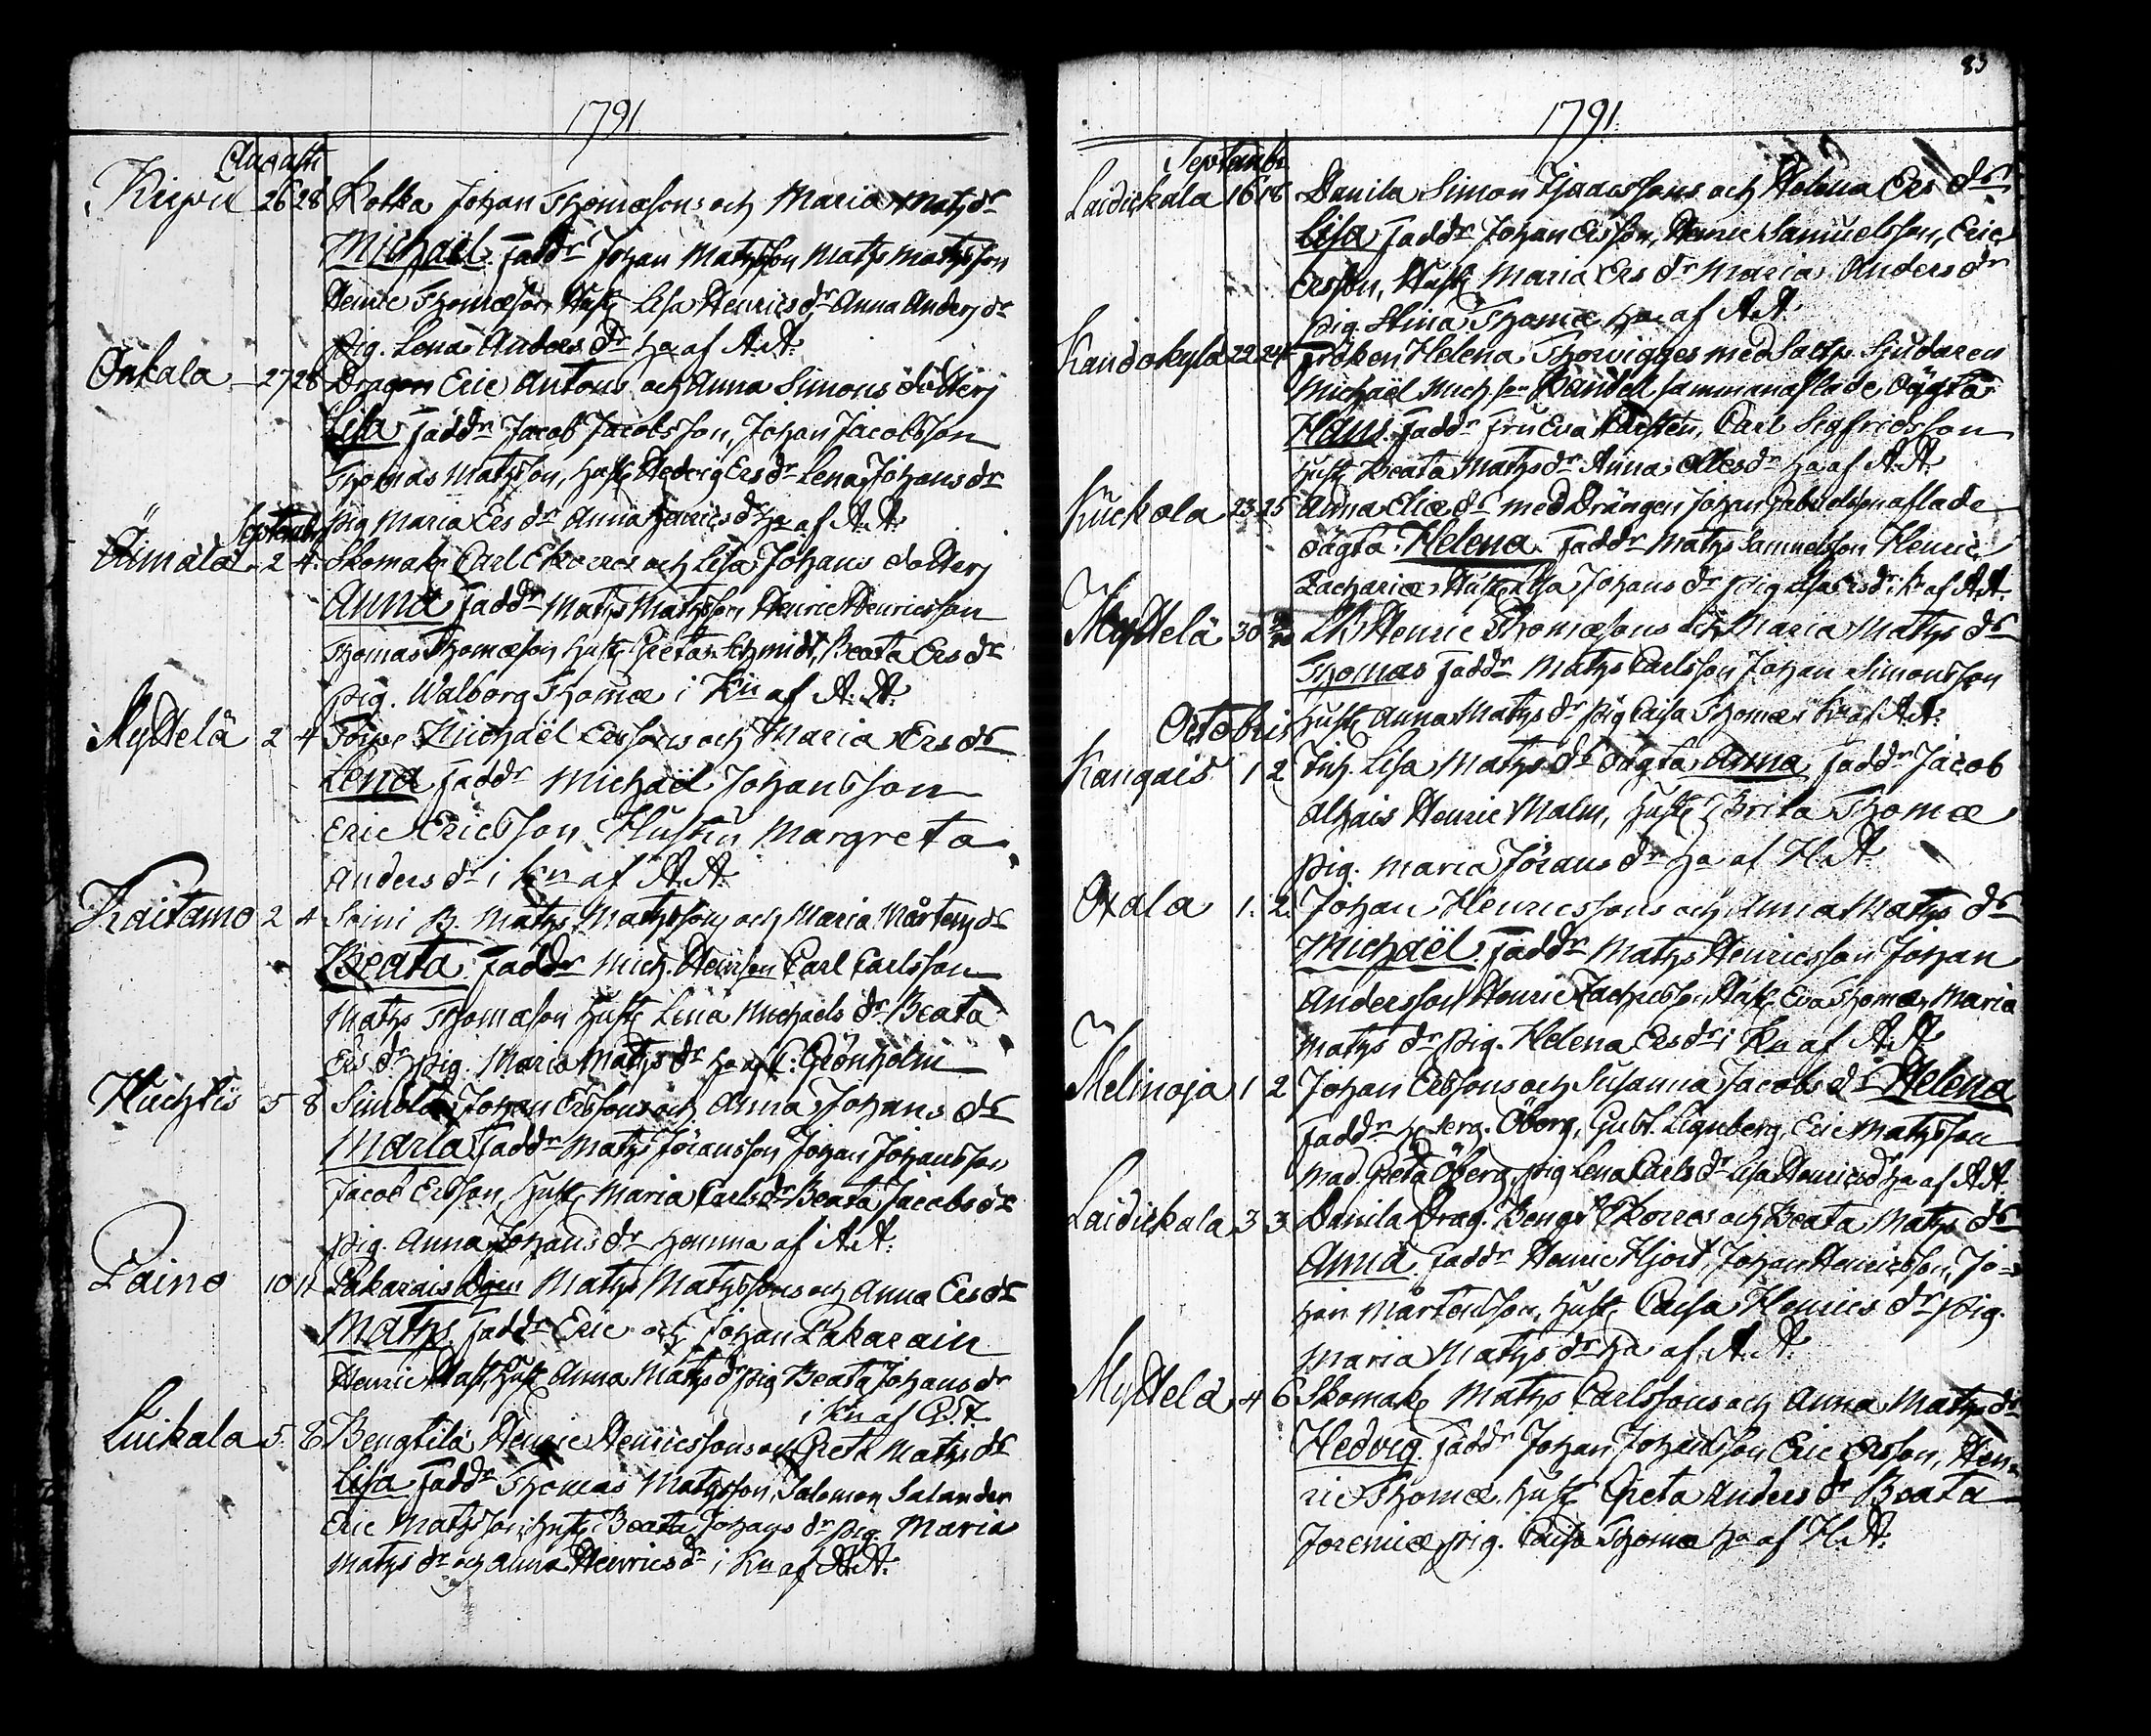 1791
Augusti
Kiipu 26 28 Kotka Johan Thomæsons och Maria Matz dr
Michaël. Faddr Johan Matzson Matz Matzson
Henric Thomæson, Hust. Lisa Henrics dr Anna Anders dr
pig. Lena Anders dr ha af A. A.
Onkala 27 28 Dragon Eric Antons och Anna Simons dotters
Lisa Faddr Jacob Jacobsson, Johan Jacobsson
Thomas Matzson, Hust. Hedvig Ers dr Lena Johans dr
pig Maria Ers dr Anna Henrics dr ha af A. A.
Septembr
Äimälä 2 4 Skomak. Carl Ekorres och Lisa Johans dotters
Anna Faddr Matz Matzson Henric Henricsson
Thomas Thomæson Hust. Greta Schmidt, Beata Ers dr
pig. Walborg Thomæ i Kn af A. A.
Myttelä 2 4 Michaël Erssons och Maria Ers dr
Lena Faddr Michaël Johansson
Eric Ericsson Hustru Margreta
Anders dr i Kn af A. A.
Raitamo 2 4 Soini B. Matz Matzsons och Maria Mårtens dr
Beata. Faddr Mich. Henrson Carl Carlsson
Matz Thomæson Hust. Lena Michaels dr Beata
Ers dr pig. Maria Matz dr ha af C. Grönholm
Huchtis 5 8 Simola Johan Erssons och Anna Johans dr
Maria Faddr Matz Jöransson Johan Johansson
Jacob Ersson, Hust. Maria Carls dr Beata Jacobs dr
pig. Anna Johans dr hemma af A. A.
Paino 10 11 Pakarais Matz Matzsons och Anna Ers dr
Matz. Faddr Eric och Johan Pakarain
Henric Hust. Anna Matz dr pig Beata Johans dr
i Kn af
Luikala 5. 8 Bengtilä Henric Henricssons och Greta Matz dr
Lisa Faddr Thomas Matzson, Salomon Salander
Eric Matzson, Hust. Beata Johans dr pig. Maria
Matz dr och Anna Henrics dr i Kn af A. A.
83
1791.
Septembr
Laidickala 16 18 Danila Simon Isaacssons och Helena Ers dr
Lisa Faddr Johan Ersson, Henric Samuelsson, Eric
Ersson, Hust. Maria Ers dr Maria Anders dr
pig. Stina Thomæ ha af A. A.
Kandokylä 22 24 Fröken Helena med Saltp. Sjudaren
Michaël Mich. son sammanaflade, oägta
Hans. Faddr Fru Eva Carl Sigfridsson
Hust. Beata Matz dr Anna dr ha af A. A.
Kuckola 23 25 Anna Eliæ dr med Drängen Johan Gabrielson aflade
oägta Helena Faddr Matz Samuelsson Henric
Zachariæ Hust. Lisa Johans dr pig Lisa Ers dr i Kn af A. A.
Myttelä 30 Henric Thomæsons och Maria Matz dr
Thomas Faddr Matz Carlsson Johan Simonsson
Hust. Anna Matz dr pig Caisa Thomæ i Kn af A. A.
Octobris
Kangais 1 2 Inh. Lisa Matz dr oägta Anna Faddr Jacob
Henric Malm, Hust. Brita Thomæ
pig. Maria Jörans dr ha af H. A.
Oxala 1. 2. Johan Henricssons och Anna Matz dr
Michaël. Faddr Matz Henricsson Johan
Andersson Henric Zachrisson, Hust. Eva Thomæ Maria
Matz dr pig. Helena Ers dr i Kn af A. A.
Melinoja 1 2 Johan Erssons och Susanna Jacobs dr Helena
Faddr Serg. Öberg, Gust. Eric Matzson
Mad. Greta Öberg pig Lena Carls dr Lisa Henrics dr ha af A. A.
Laidickala 3 3 Danila Drag. Bengt Ekorres och Beata Matz dr
Anna Faddr Henric Hjort, Johan Henricsson, Jo-
han Mårtensson, Hust. Caisa Henrics dr pig.
Maria Matz dr ha af A. A.
Myttelä 4 6 Skomak. Matz Carlssons och Anna Matz dr
Hedvig. Faddr Johan Johansson Eric Ersson, Hen-
ric Thomæ. Hust. Greta Anders dr Beata
Jeremiæ pig. Caisa Thomæ ha af H. A.